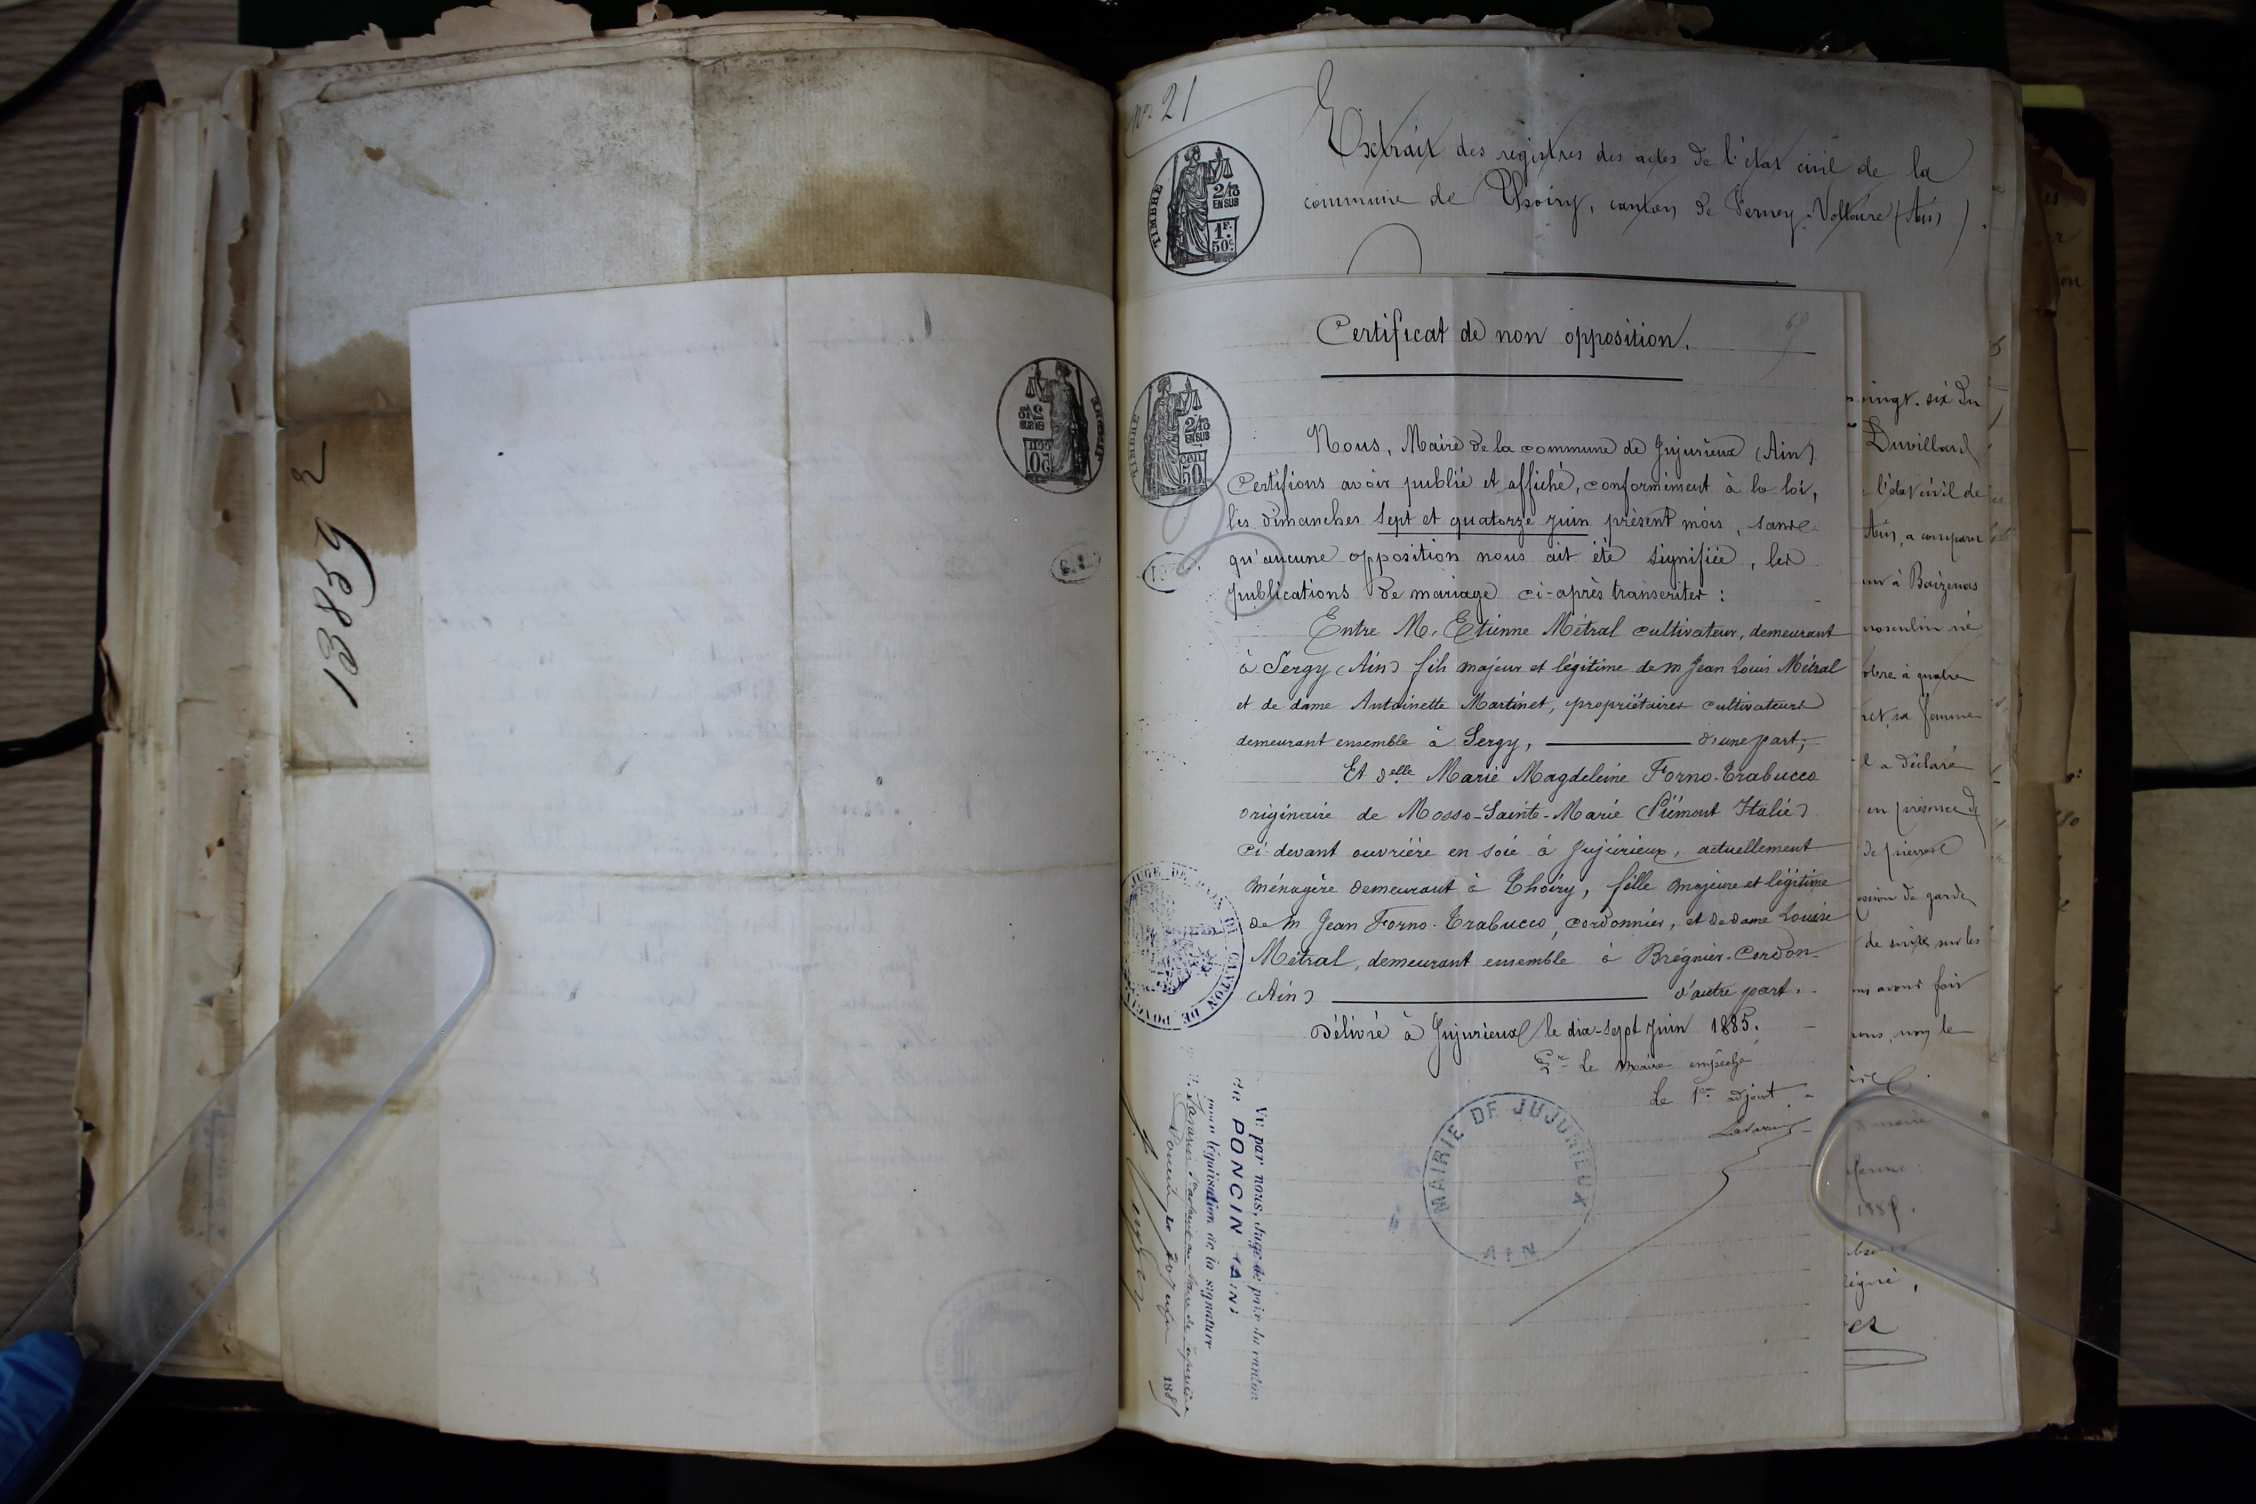 1885 9 2
no 21
Extrait des registres des actes de l'état civil de la
commune de Thoiry, canton de Ferney-Voltaire (Ain)
TIMBRE
2/10
EN SUS
1F.
50c.
Certificat de non opposition.
TIMBRE
2/10
EN SUS
50
Nous, Maire de la commune de Jujurieux (Ain)
Certifions avoir publié et affiché, conformément à la loi,
les dimanches sept et quatorze juin présent mois, sans
qu'aucune opposition nous ait été signifiée, les
publications de mariage ci-après transcrites :
Entre M. Etienne Métral cultivateur, demeurant
à Sergy (Ain) fils majeur et légitime de m Jean Louis Métral
et de dame Antoinette Martinet, propriétaires cultivateurs
demeurant ensemble à Sergy, d'une part,
Et Delle Marie Magdeleine Forno-Trabucco
originaire de Mosso-Sainte-Marie (Piémont Italie)
ci-devant ouvrière en soie à Jujurieux, actuellement
ménagère demeurant à Thoiry, fille majeure et légitime
de m Jean Forno-Trabucco, cordonnier, et de dame Louise
Métral, demeurant ensemble à Brégnier-Cordon
(Ain) d'autre part.
Délivré à Jujurieux le dix-sept juin 1885.
Pr le maire empêché
Le 1er adjoint
MAIRIE DE JUJURIEUX
AIN
JUGE DE PAIX DU CANTON DE PONCIN
Vu par nous, Juge de paix du canton
de PONCIN (AIN)
pour légalisation de la signature
Poncin 20 Juin 1885
vingt-six du
Duvillard
l'état civil de
Ain, a comparu
masculin né
à quatre
sa femme
a déclaré
en présence de
de pierre
de garde
de suite sur les
avons fait
nous, le